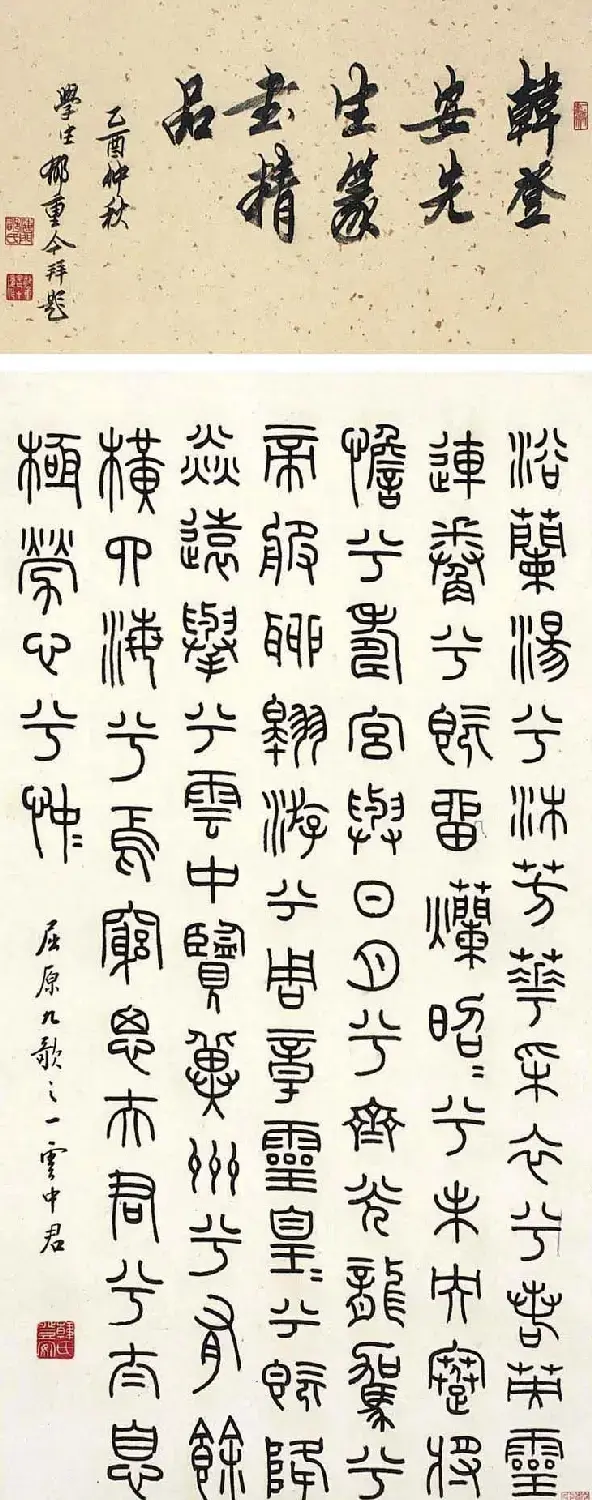 韓登
安先
生篆
書精
品
乙酉仲秋
學生郁重今拜題
浴蘭湯兮沐芳華采衣兮若英靈
連蜷兮既留爛昭〻兮未央蹇將
憺兮壽宮與日月兮齊光龍駕兮
帝服聊翱游兮周章靈皇〻兮既降
猋遠舉兮雲中覽冀州兮有餘
橫四海兮焉窮思夫君兮太息
極勞心兮忡〻
屈原九歌之一雲中君